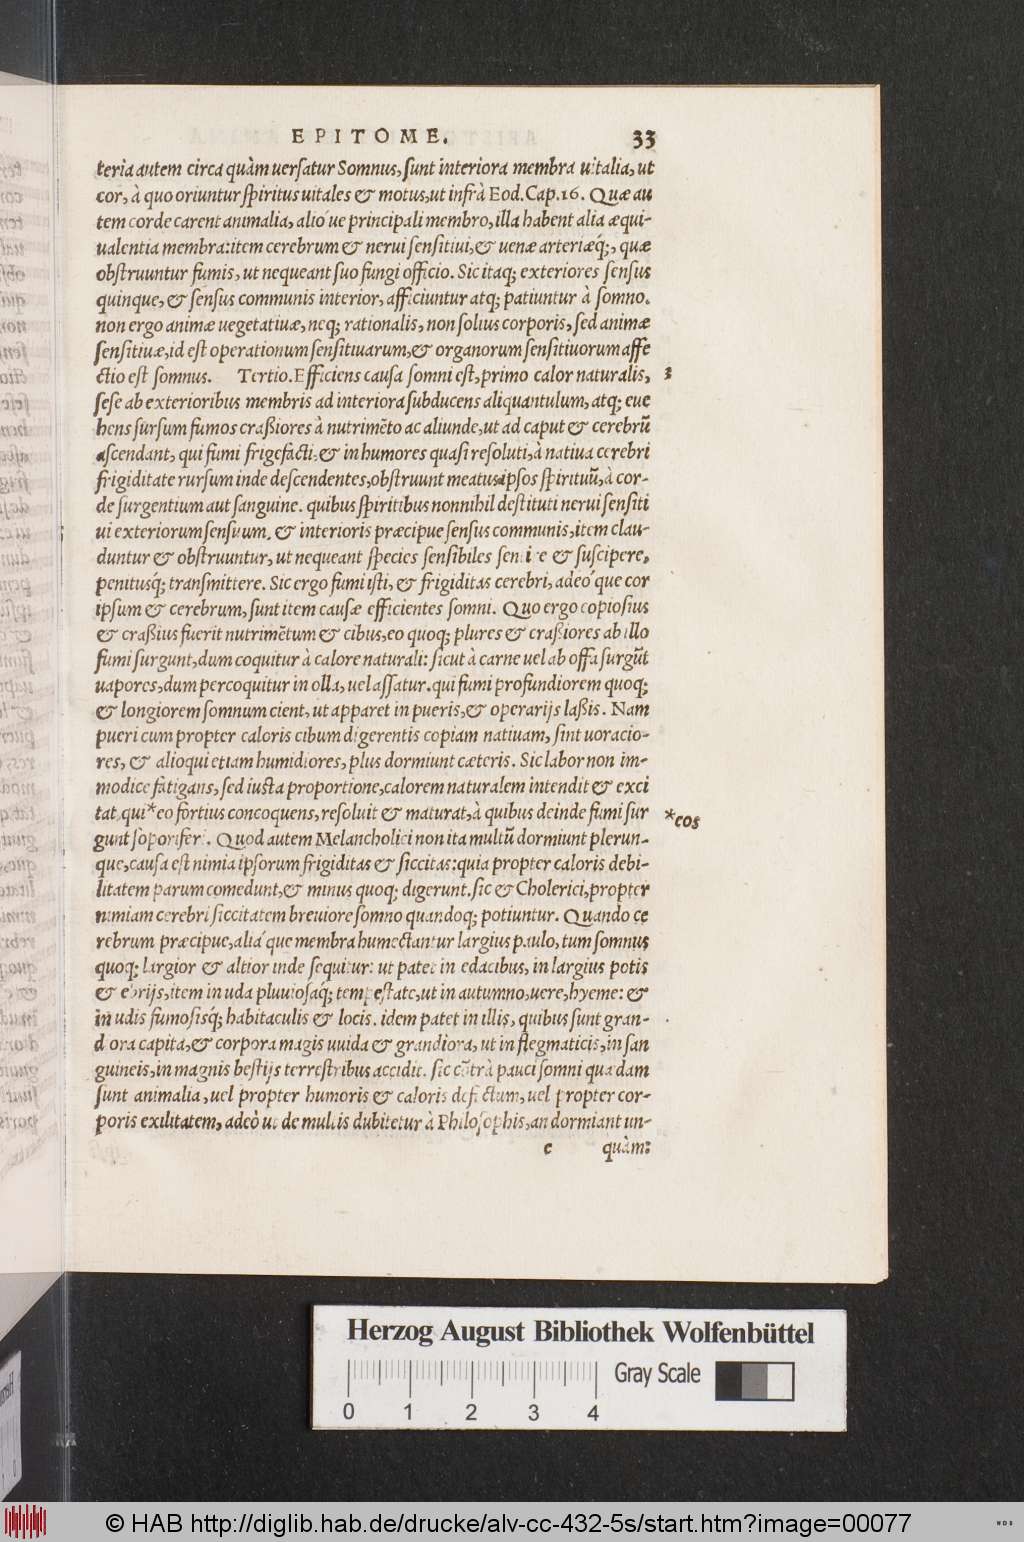 EPITOME. 33
teria autem circa quàm uersatur Somnus, sunt interiora membra uitalia, ut
cor, à quo oriuntur spiritus uitales & motus, ut infrà Eod. Cap. 16. Quæ au
tem corde carent animalia, alióue principali membro, illa habent alia æqui-
ualentia membra: item cerebrum & nerui sensitiui, & uenæ arteriæq́;, quæ
obstruuntur fumis, ut nequeant suo fungi officio. Sic itaq; exteriores sensus
quinque, & sensus communis interior, afficiuntur atq; patiuntur à somno.
non ergo animæ uegetatiuæ, neq; rationalis, non solius corporis, sed animæ
sensitiuæ, id est operationum sensitiuarum, & organorum sensitiuorum affe
ctio est somnus. Tertio. Efficiens causa somni est, primo calor naturalis, 3
sese ab exterioribus membris ad interiora subducens aliquantulum, atq; eue
hens sursum fumos craßiores à nutrimẽto ac aliunde, ut ad caput & cerebrũ
ascendant, qui fumi frigefacti, & in humores quasi resoluti, à natiua cerebri
frigiditate rursum inde descendentes, obstruunt meatus ipsos spirituũ, à cor-
de surgentium aut sanguine. quibus spiritibus nonnihil destituti nerui sensiti
ui exteriorum sensuum, & interioris præcipue sensus communis, item clau-
duntur & obstruuntur, ut nequeant species sensibiles sentire & suscipere,
penitusq́; transmittere. Sic ergo fumi isti, & frigiditas cerebri, adeóque cor
ipsum & cerebrum, sunt item causæ efficientes somni. Quo ergo copiosius
& craßius fuerit nutrimẽtum & cibus, eo quoq; plures & craßiores ab illo
fumi surgunt, dum coquitur à calore naturali: sicut à carne uel ab offa surgũt
uapores, dum percoquitur in olla, uel assatur. qui fumi profundiorem quoq;
& longiorem somnum cient, ut apparet in pueris, & operarijs laßis. Nam
pueri cum propter caloris cibum digerentis copiam natiuam, sint uoracio-
res, & alioqui etiam humidiores, plus dormiunt cæteris. Sic labor non im-
modice fatigans, sed iusta proportione, calorem naturalem intendit & exci
tat, qui *eo fortius concoquens, resoluit & maturat, à quibus deinde fumi sur *cos
gunt soporiferi. Quod autem Melancholici non ita multũ dormiunt plerun-
que, causa est nimia ipsorum frigiditas & siccitas: quia propter caloris debi-
litatem parum comedunt, & minus quoq; digerunt. sic & Cholerici, propter
nimiam cerebri siccitatem breuiore somno quandoq; potiuntur. Quando ce
rebrum præcipue, aliáque membra humectantur largius paulo, tum somnus
quoq; largior & altior inde sequitur: ut patet in edacibus, in largius potis
& ebrijs, item in uda pluuiosaq́; tempestate, ut in autumno, uere, hyeme: &
in udis fumosisq́; habitaculis & locis. idem patet in illis, quibus sunt gran-
diora capita, & corpora magis uuida & grandiora, ut in flegmaticis, in san
guineis, in magnis bestijs terrestribus accidit. sic cõtrà pauci somni quædam
sunt animalia, uel propter humoris & caloris defectum, uel propter cor-
poris exilitatem, adeò ut de multis dubitetur à Philosophis, an dormiant un-
e quàm:
Herzog August Bibliothek Wolfenbüttel
Gray Scale
0 1 2 3 4
© HAB http://diglib.hab.de/drucke/alv-cc-432-5s/start.htm?image=00077